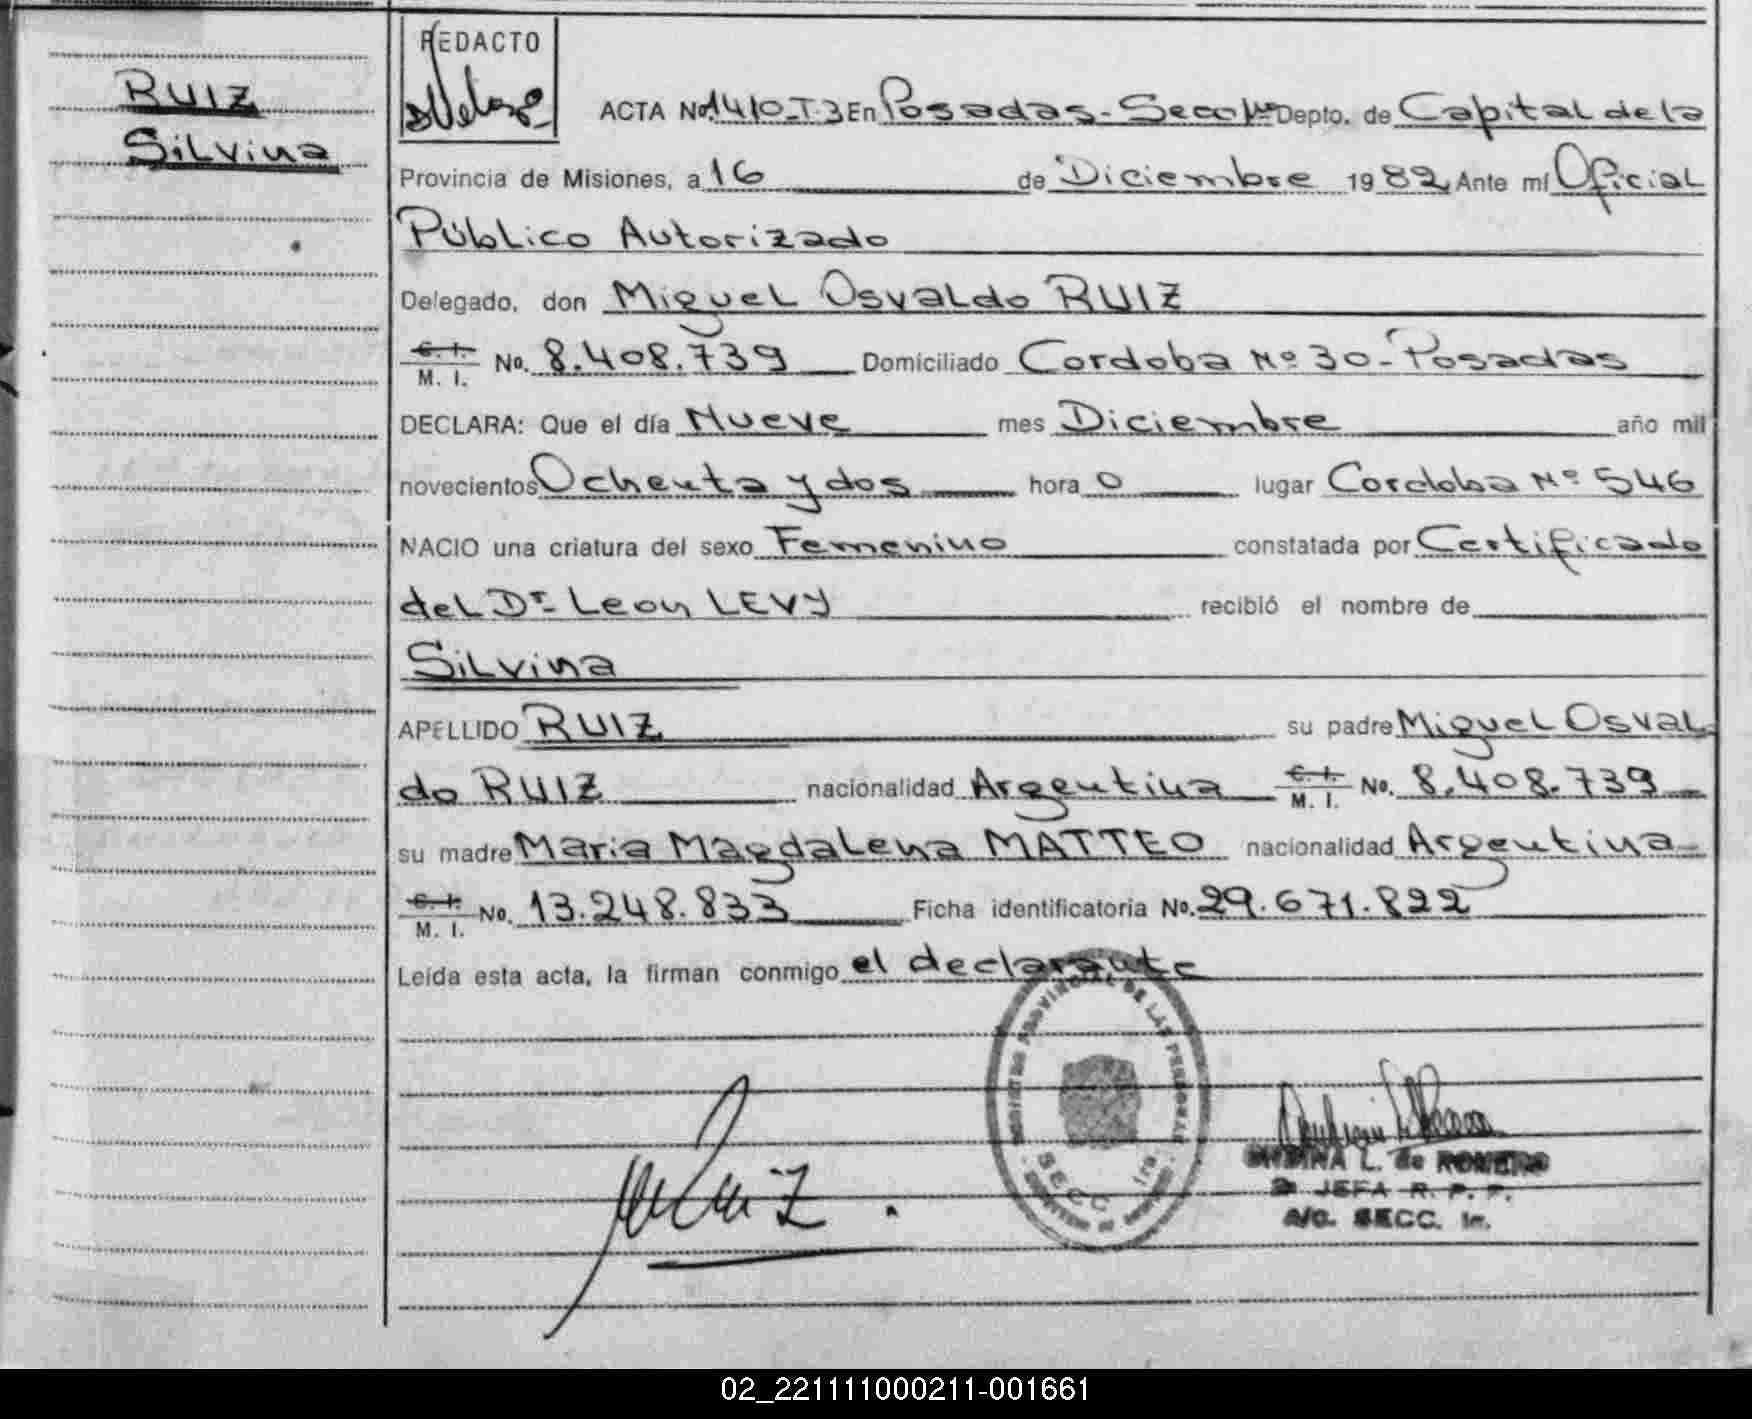 RUIZ
Silvina
REDACTO
ACTA No. 1410-T.3 En Posadas-Secc 1ra Depto. de Capital de la
Provincia de Misiones, a 16 de Diciembre 1982 Ante mí Oficial
Público Autorizado
Delegado, don Miguel Osvaldo RUIZ
C. I. M. I. No. 8.408.739 Domiciliado Cordoba Nº 30-Posadas
DECLARA: Que el día Nueve mes Diciembre año mil
novecientos Ochenta y dos hora 0 lugar Cordoba Nº 546
NACIO una criatura del sexo Femenino constatada por Certificado
del Dr Leon LEVY recibió el nombre de
Silvina
APELLIDO RUIZ su padre Miguel Osval
do RUIZ nacionalidad Argentina C. I. M. I. No. 8.408.739
su madre Maria Magdalena MATTEO nacionalidad Argentina
C. I. M. I. No. 13.248.833 Ficha identificatoria No. 29.671.822
Leída esta acta, la firman conmigo el declarante
REGISTRO PROVINCIAL DE LAS PERSONAS
SECC. 1ra
L. de ROMERO
JEFA R. P. P.
A/C. SECC. 1r.
02_221111000211-001661